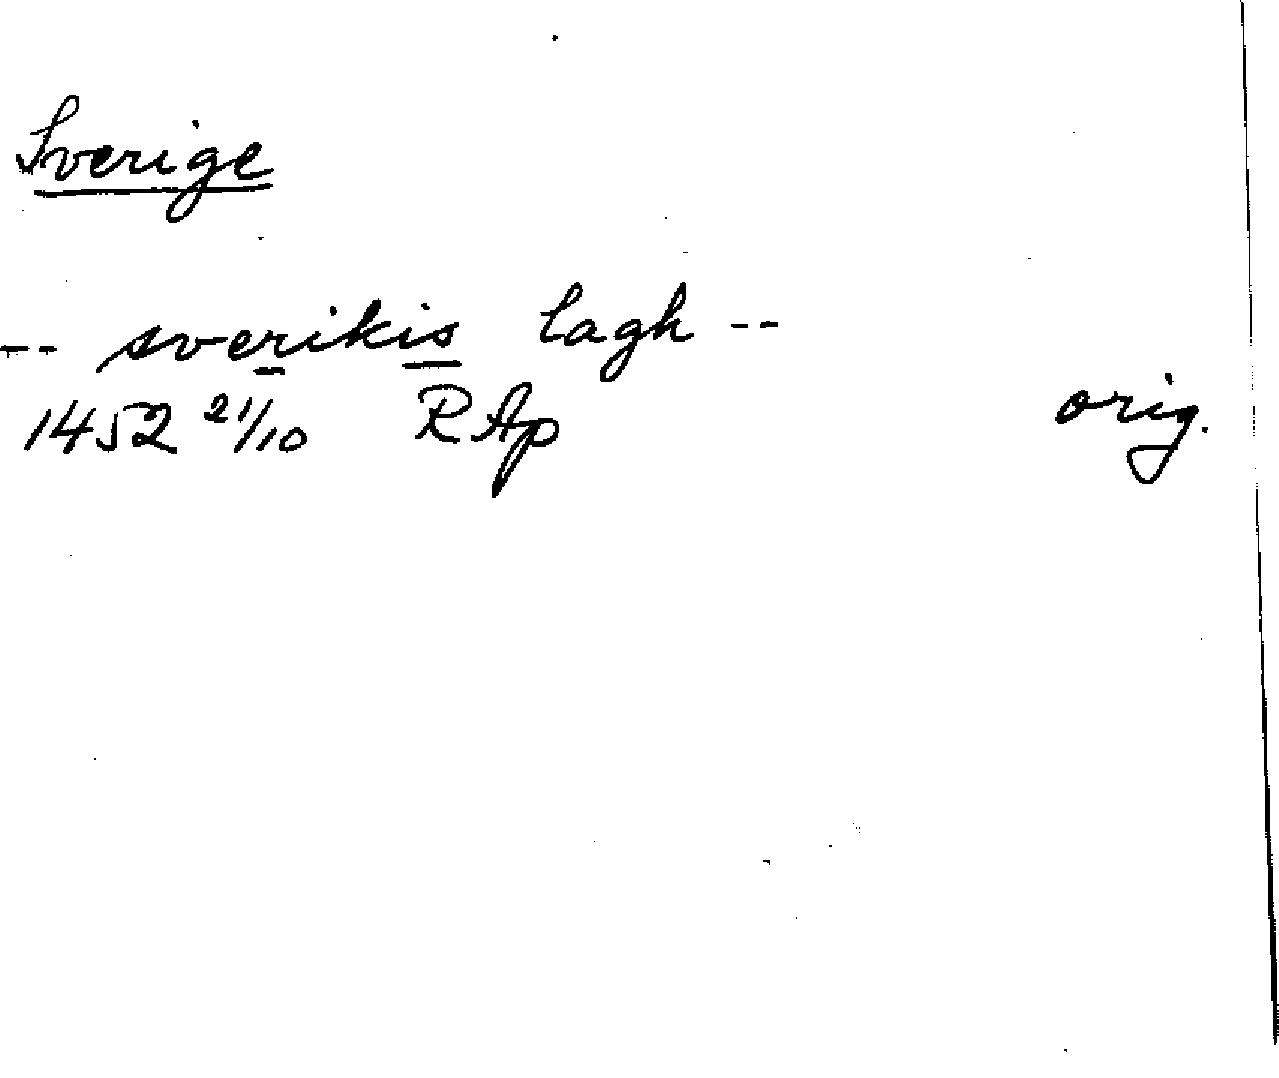 Sverige
-- sverikis lagh --
1452 21/10 RAp orig.